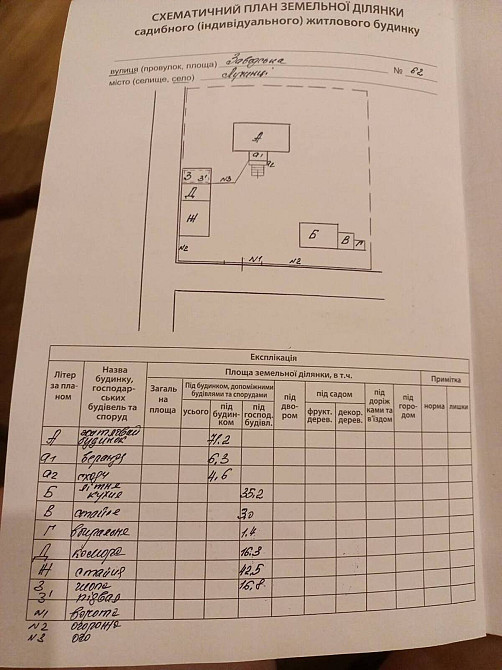 СХЕМАТИЧНИЙ ПЛАН ЗЕМЕЛЬНОЇ ДІЛЯНКИ
садибного (індивідуального) житлового будинку
вулиця (провулок, площа) Заводська № 62
місто (селище, село) Лужни
А
а1
а2
З З'
N3
Д
Ж
Б
В
Г
N2
N1
N2
Експлікація
Літер за планом
Назва будинку, господарських будівель та споруд
Загальна площа
Площа земельної ділянки, в т.ч.
Примітка
Під будинком, допоміжними будівлями та спорудами
під двором
під садом
під доріжками та в'їздом
під городом
норма
лишки
усього
під будинком
під господ. будівл.
фрукт. дерев.
декор. дерев.
А житловий будинок 71.2
а1 веранда 6,3
а2 сходи 4,6
Б літня кухня 35,2
В стайне 3,0
Г вбиральня 1,4
Д комора 16.3
Ж стайня 42,5
З шопа 16,8
З' підвал
N1 ворота
N2 огорожа
N3